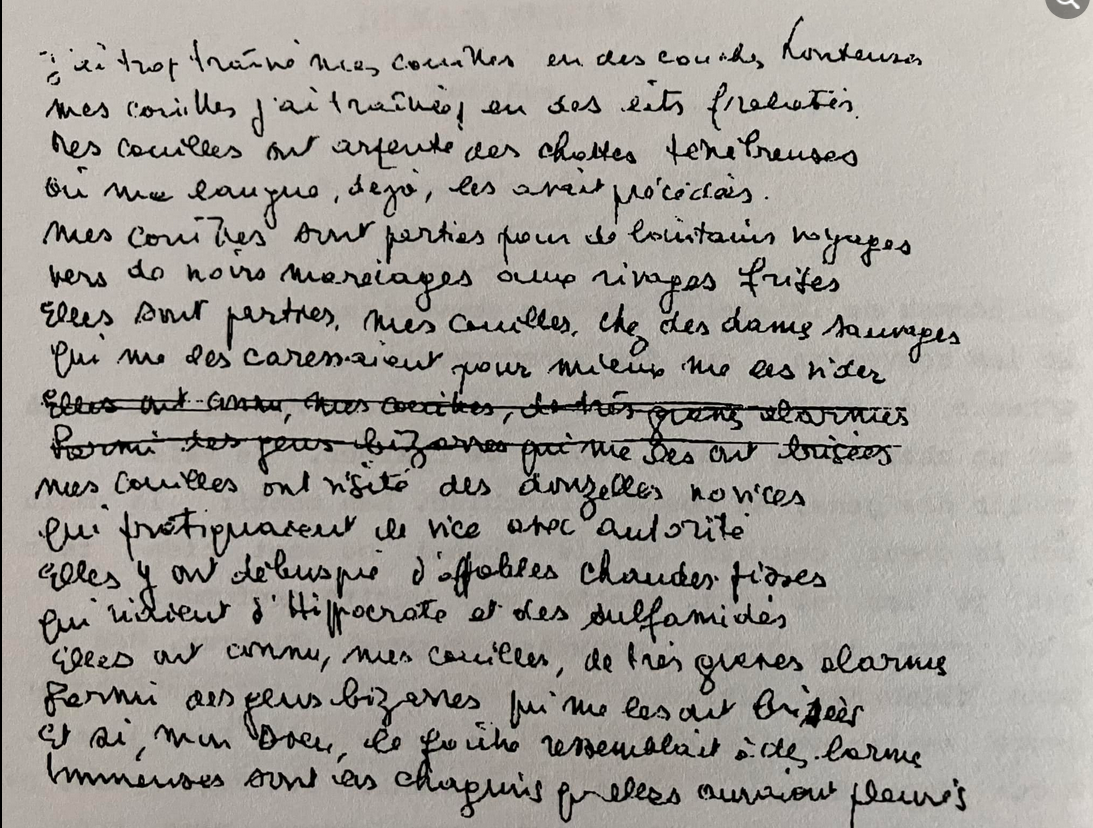 J'ai trop traîné mes couilles en des couches honteuses
mes couilles j'ai traînées en des lits frelatés.
Mes couilles ont arpenté des chattes ténébreuses
Où ma langue, déjà, les avait précédées.
Mes couilles sont parties pour de lointains voyages
vers de noirs marécages aux rivages frisés
Elles sont parties, mes couilles, chez des dames sauvages
Qui me les caressaient pour mieux me les vider
Elles ont connu, mes couilles, de très graves alarmes
Parmi des gens bizarres qui me les ont brisées
Mes couilles ont visité des donzelles novices
Qui pratiquaient le vice avec autorité
Elles y ont débusqué d'affables chaudes pisses
Qui riaient d'Hippocrate et des sulfamidés
Elles ont connu, mes couilles, de très graves alarmes
Parmi des gens bizarres qui me les ont brisées
Et si, mon Dieu, le foutre ressemblait à des larmes
Immenses sont les chagrins qu'elles auraient pleurés